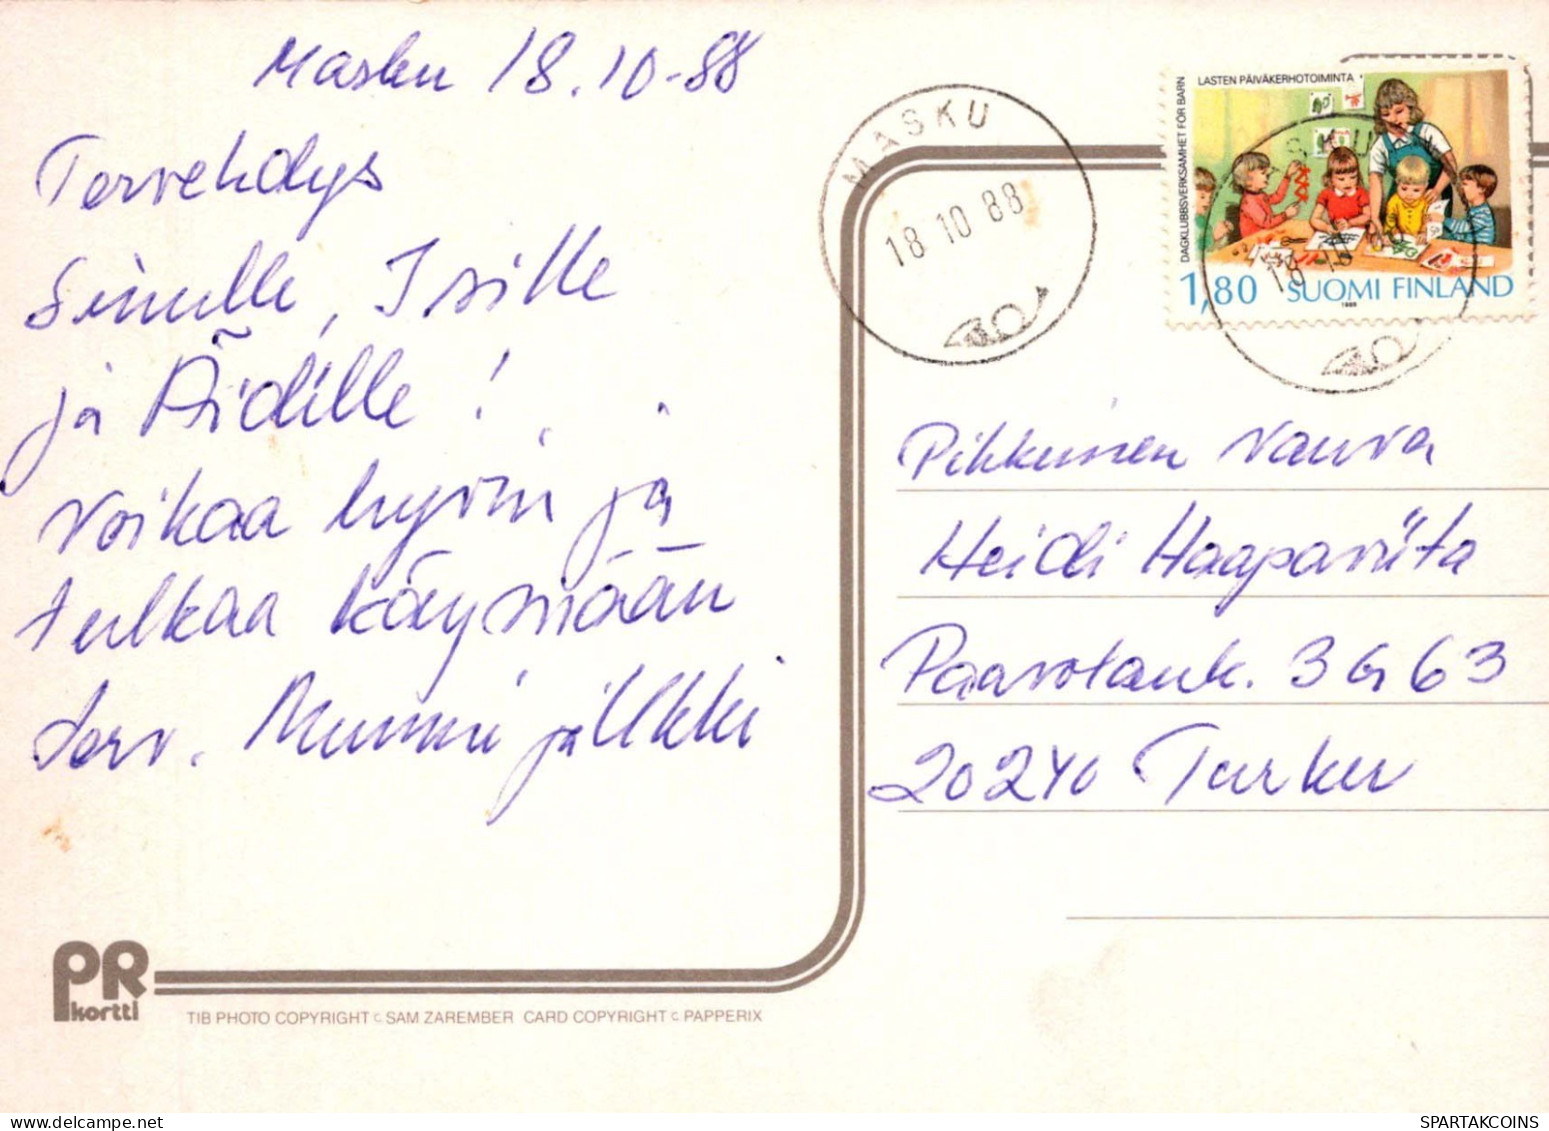 Masku 18.10-88
Tervehdys
Sinulle, Isille
ja Äidille!
Voikaa hyvin ja
tulkaa käymään
terv. Mummi ja Ukki
MASKU
18 10 88
DAGKLUBBSVERKSAMHET FÖR BARN
LASTEN PÄIVÄKERHOTOIMINTA
MASKU
18 10 88
1,80 SUOMI FINLAND
1988
Pikkuinen vauva
Heidi Haapaviita
Paavolank. 3 G 63
20240 Turku
PR
kortti
TIB PHOTO COPYRIGHT c SAM ZAREMBER CARD COPYRIGHT c PAPPERIX
SPARTAKCOINS